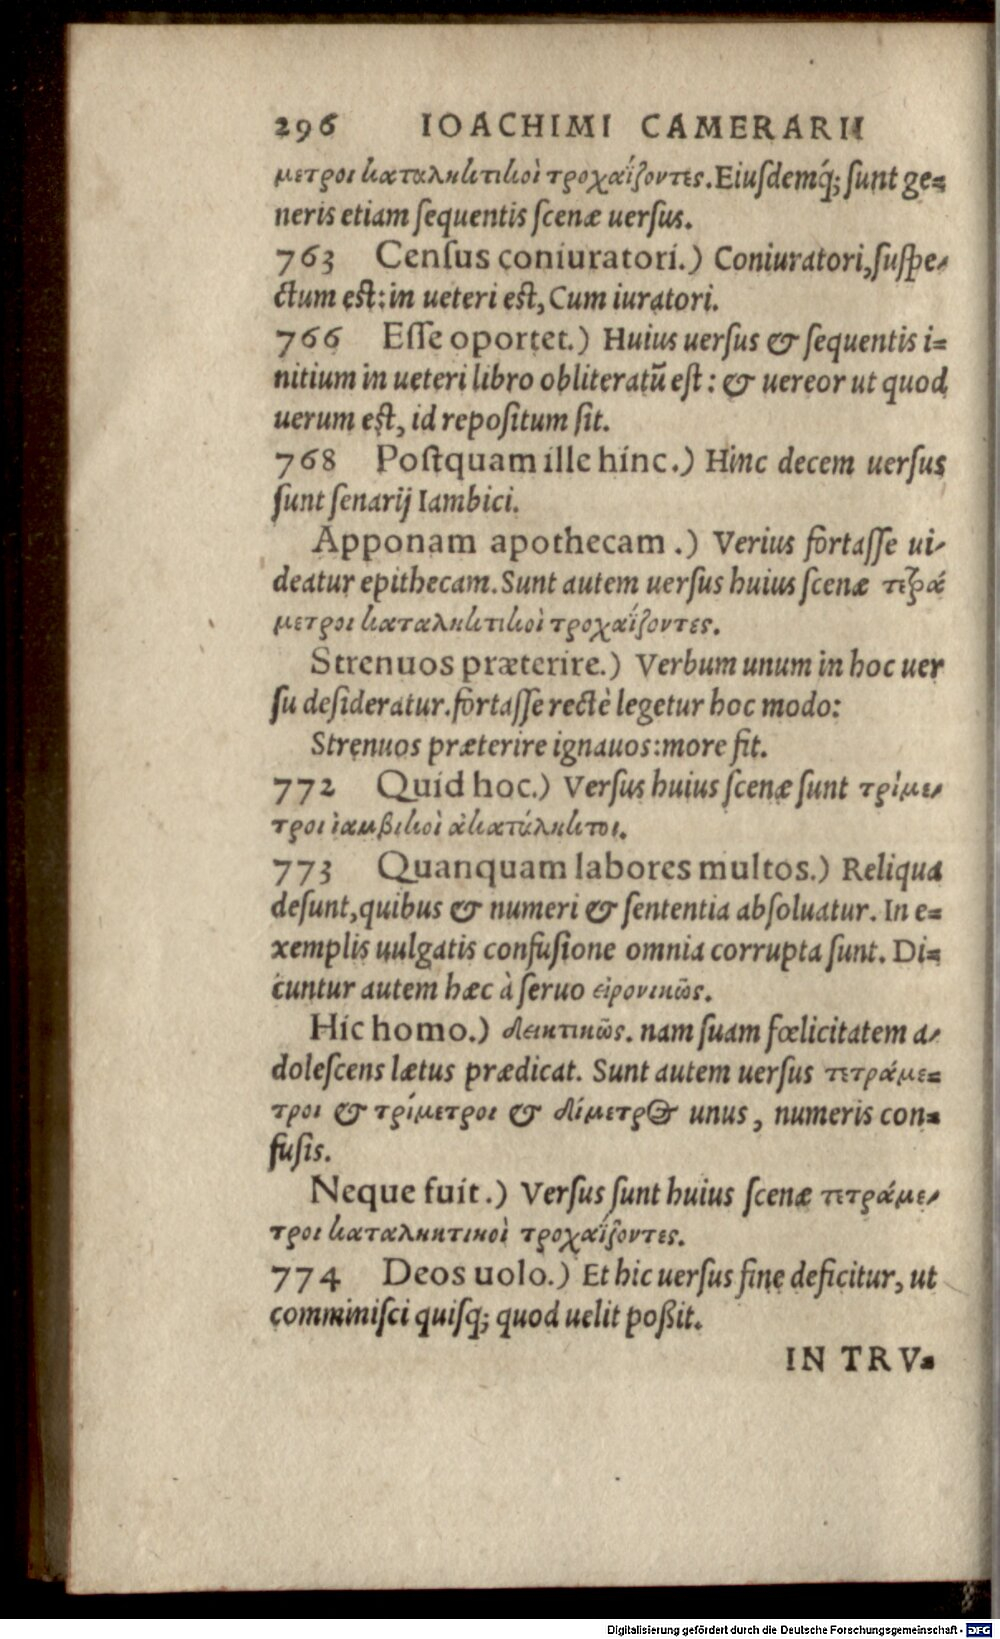 296 IOACHIMI CAMERARII
μετροι καταληκτικοὶ τροχαΐζοντες. Eiuſdemq́; ſunt ge=
neris etiam ſequentis ſcenæ uerſus.
763 Cenſus coniuratori.) Coniuratori, ſuſpe-
ctum eſt: in ueteri eſt, Cum iuratori.
766 Eſſe oportet.) Huius uerſus & ſequentis i=
nitium in ueteri libro obliteratū eſt: & uereor ut quod
uerum eſt, id repoſitum ſit.
768 Poſtquam ille hinc.) Hinc decem uerſus
ſunt ſenarij Iambici.
Apponam apothecam.) Verius fortaſſe ui-
deatur epithecam. Sunt autem uerſus huius ſcenæ τετρά
μετροι καταληκτικοὶ τροχαΐζοντες.
Strenuos præterire.) Verbum unum in hoc uer
ſu deſideratur. fortaſſe rectè legetur hoc modo:
Strenuos præterire ignauos: more fit.
772 Quid hoc.) Verſus huius ſcenæ ſunt τρίμε-
τροι ἰαμβικοὶ ἀκατάληκτοι.
773 Quanquam labores multos.) Reliqua
deſunt, quibus & numeri & ſententia abſoluatur. In e=
xemplis uulgatis confuſione omnia corrupta ſunt. Di=
cuntur autem hæc à ſeruo εἰρονικῶς.
Hic homo.) δεικτικῶς. nam ſuam fœlicitatem a-
doleſcens lætus prædicat. Sunt autem uerſus τετράμε=
τροι & τρίμετροι & δίμετρος unus, numeris con=
fuſis.
Neque fuit.) Verſus ſunt huius ſcenæ τετράμε-
τροι καταληκτικοὶ τροχαΐζοντες.
774 Deos uolo.) Et hic uerſus fine deficitur, ut
comminiſci quiſq; quod uelit poßit.
IN TRV=
Digitalisierung gefördert durch die Deutsche Forschungsgemeinschaft - DFG